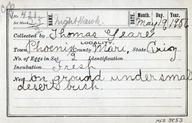 No. 421
Nighthawk
Month, Day, Year.
May 19, 1956
Collected by Thomas Gearé
LOCALITY
Town, Phoenix County, Mari, State, Ariz
No. of Eggs in Set, 2 Identification
Incubation Fresh
on ground under small
desert bush